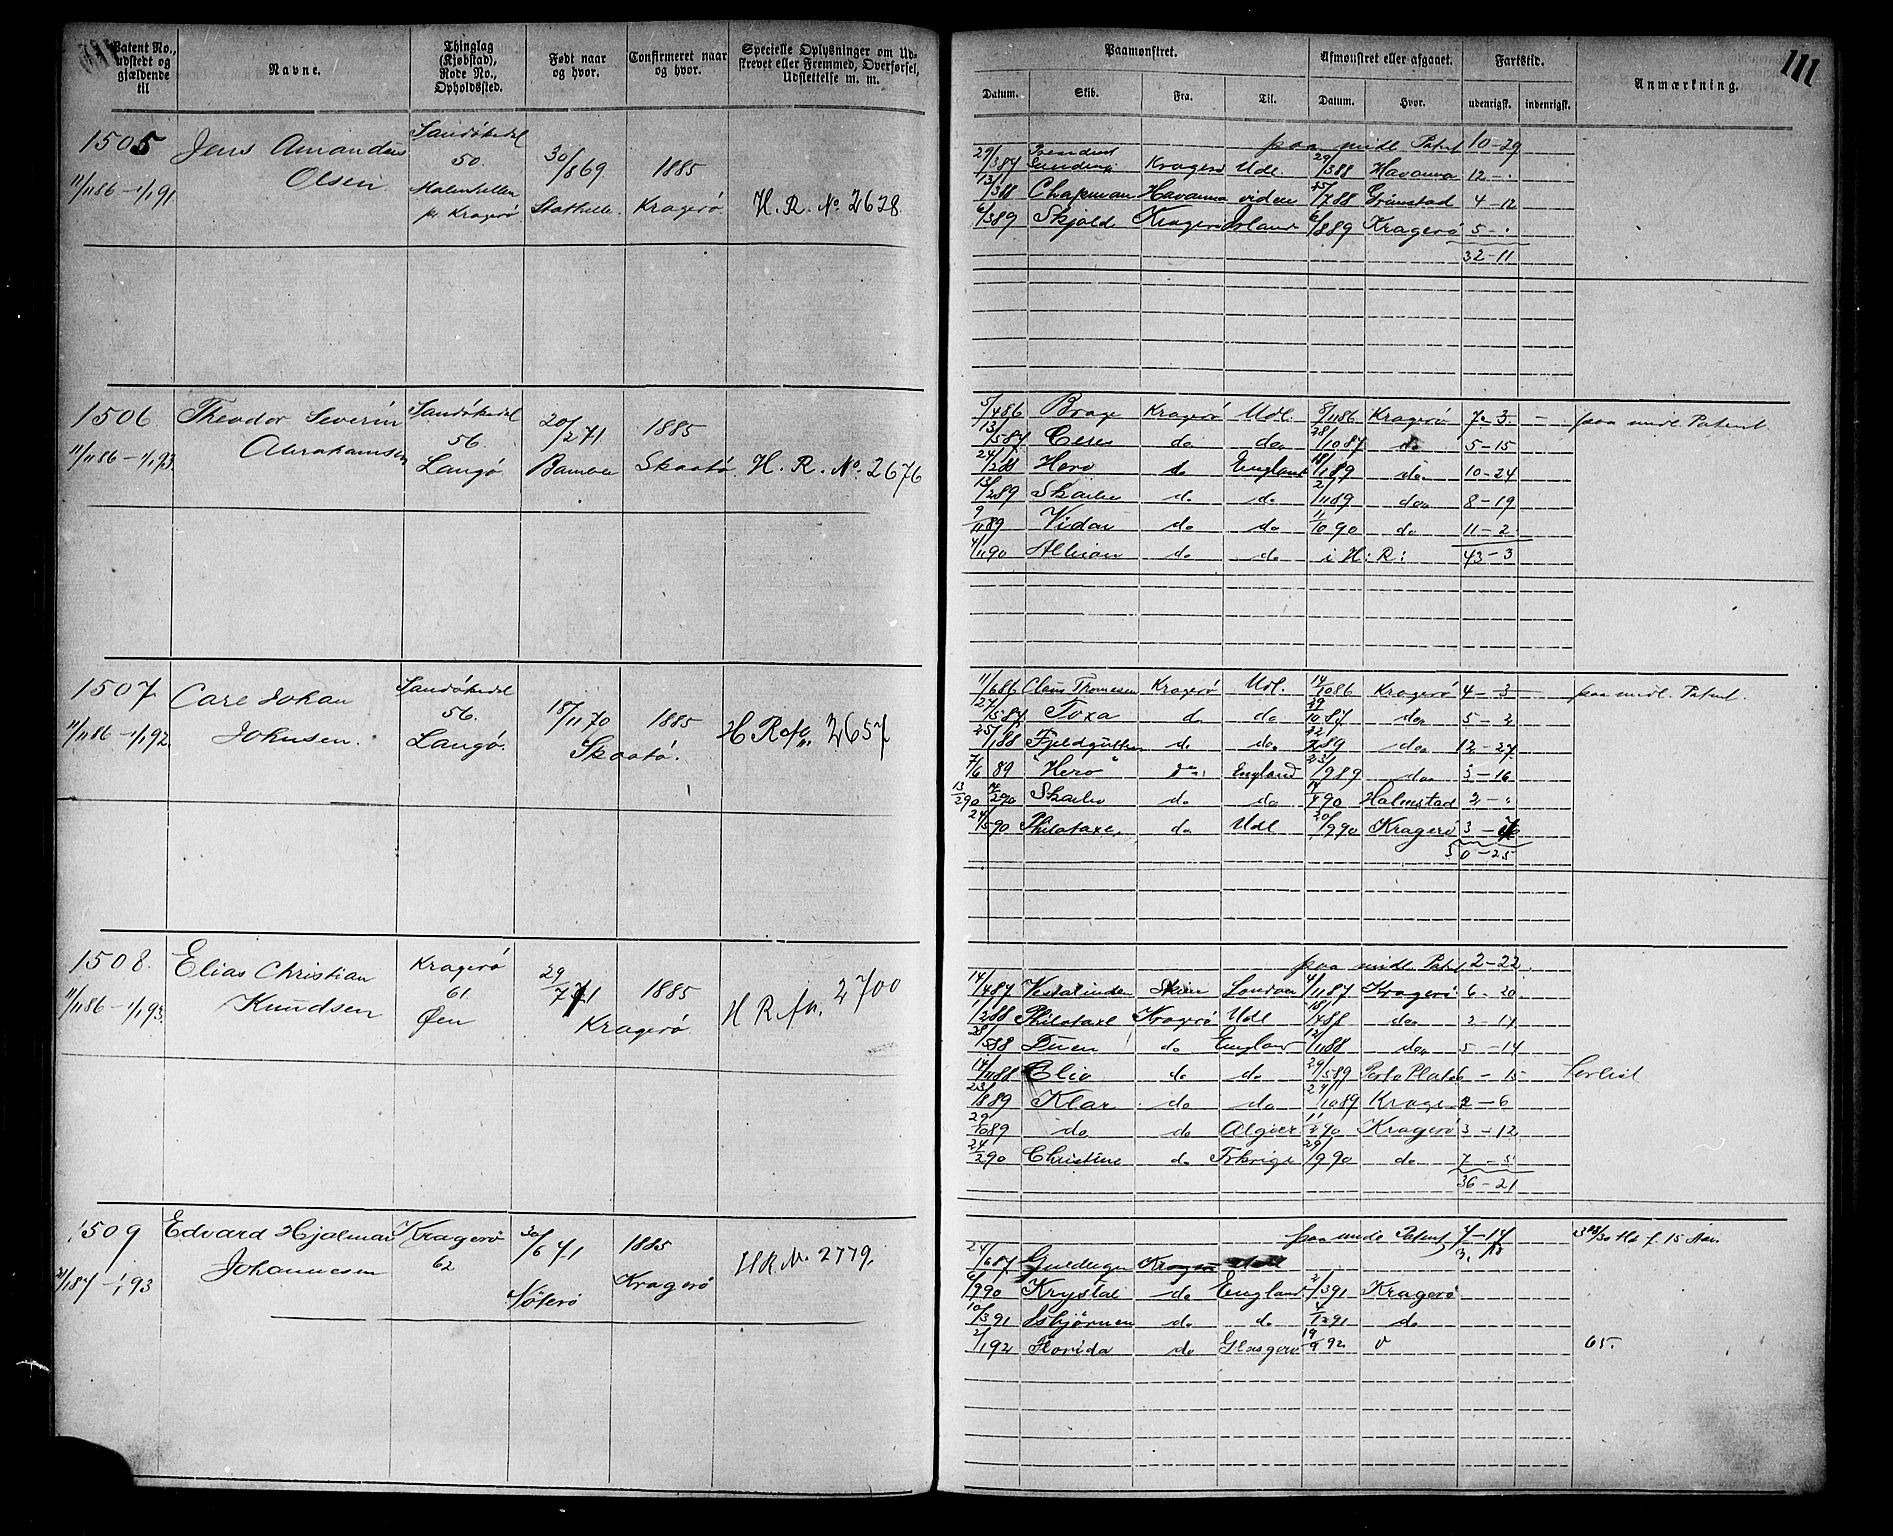 111
Patent No., udstedt og gjældende til
Navne.
Thinglag (Kjøbstad), Rode No., Opholdssted.
Født naar og hvor.
Confirmeret naar og hvor.
Specielle Oplysninger om Udskrevet eller Fremmed, Overførsel, Udslettelse m. m.
Paamønstret.
Afmønstret eller afgaaet.
Fartstid.
Anmærkning.
Datum. Skib. Fra. Til. Datum. Hvor. udenrigsk. indenrigsk.
1505 Jens Amandus Olsen
11/11 86 – 1/1 91
Sandøkedel 50
pr Kragerø
30/8 69 Stathelle
1885 Kragerø
H. R. No. 2628
paa midl Patent 10-29
29/3 87 Kragerø Udl. 29/3 88 Havanna 12 -
13/3 88 Chapman Havanna viden 15/7 88 Grimstad 4-12
6/3 89 Skjold Kragerø Irland 6/8 89 Kragerø 5 -
32-11
1506 Theodor Severin Abrahamsen
11/11 86 – 1/1 93
Sandøkedel 56 Langø
20/2 71 Bamble
1885 Skaatø
H. R. No. 2676
5/4 86 Brage Kragerø Udl. 8/11 86 Kragerø 7-3 – paa midl. Patent
13/5 87 Ceres do do 28/10 87 do 5-15
24/2 88 Hero do England 18/1 89 do 10-24
13/2 89 do do 2/11 89 do 8-19
9/11 89 Vidar do do 11/10 90 do 11-2
4/11 90 Albion do do i H: R: 43-3
1507 Carl Johan Johnsen.
11/11 86 – 1/1 92
Sandøkedel 56. Langø.
15/11 70
1885
Skaatø.
H R fø 2657
11/6 86 Claus Thomesen Kragerø Udl. 14/10 86 Kragerø 4-3 paa midl. Patent.
27/5 87 Toxa do do 29/10 87 do 5-2
25/1 88 do do 89 do 12-27
7/6 89 "Hero" do England 23/9 89 do 3-16
13/2 90 do do 90 Halmstad 2-
24/5 90 Philotaxe. do Udl 20/9 90 Kragerø 3 -
30-25
1508. Elias Christian Knudsen
11/11 86 – 1/1 93.
Kragerø 61 Øen
29/7 71
1885
Kragerø
H R fø. 2700
paa midl. Patent 2-22
14/4 87 Vestalinden Skien London 4/11 87 Kragerø 6-20
1/2 88 Philotaxe Kragerø Udl 4 88 do 2-14
28/5 88 Duen do England 12/11 88 do 5-14
14/11 88 Clio do do 29/5 89 Porto Plata 6-15 forlist
23/8 89 Klar do do 29/10 89 Kragerø 2-6
29/10 89 do do Algier 90 Kragerø 3-12
24/2 90 Christine do 29/9 90 do 7-5
36-21
1509 Edvard Hjalmar Johannesen
84 – 1/1 93
Kragerø 62
30/6 71
1885 Kragerø
HR No 2779.
paa midl Patent 7-14
24/6 87 Kragerø Udl
6/9 90 Krystal do England 2/3 91 Kragerø
10/3 91 Isbjørnen do do 91 do
2/1 92 Florida do Glasgow 19/9 92
65.